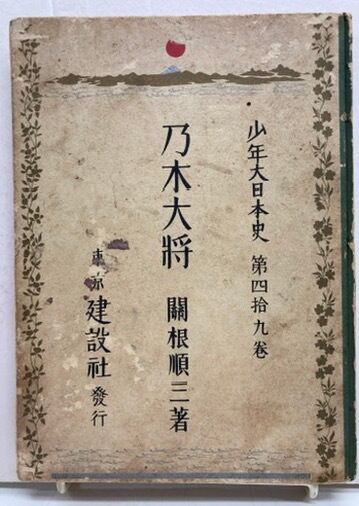 少年大日本史 第四拾九卷
乃木大將 關根順三著
東京 建設社 發行